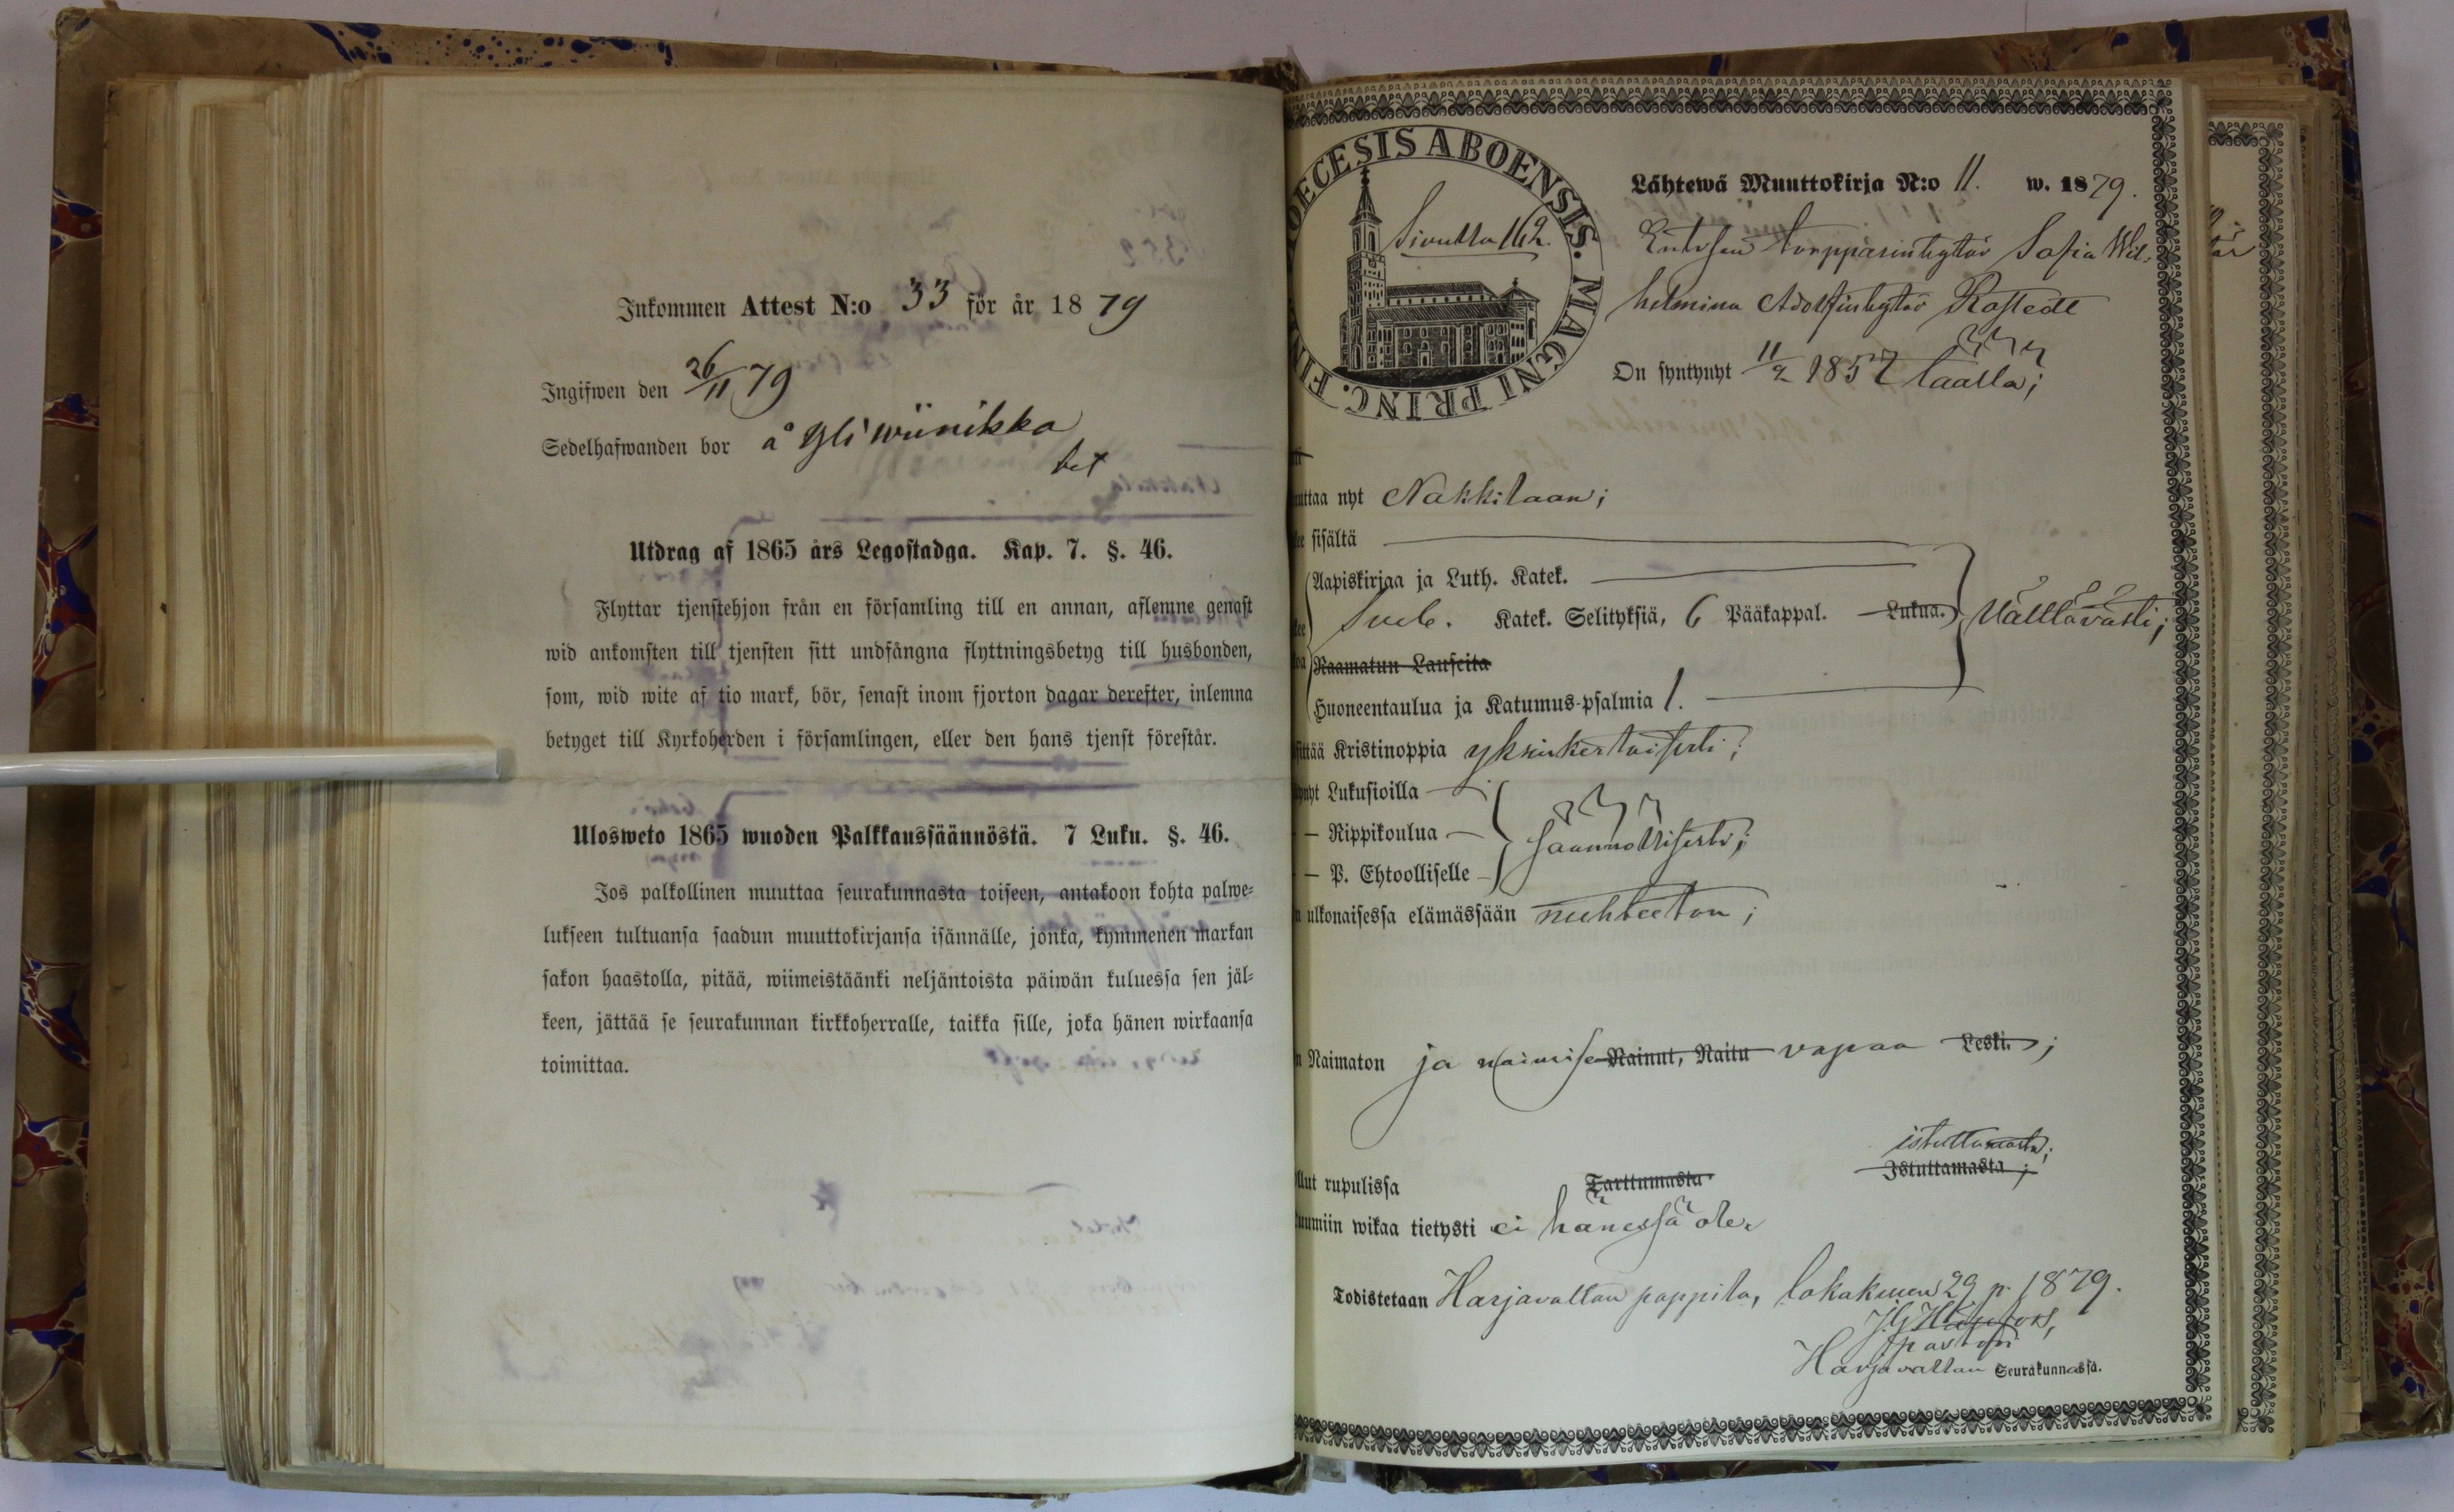 Inkommen Attest N:o 33 för år 1879
Ingifwen den 26/11 79
Sedelhafwanden bor å Yliwiinikka
bet
Utdrag af 1865 års Legostadga. Kap. 7. §. 46.
Flyttar tjenstehjon från en församling till en annan, aflemne genast
wid ankomsten till tjensten sitt undfångna flyttningsbetyg till husbonden,
som, wid wite af tio mark, bör, senast inom fjorton dagar derefter, inlemna
betyget till Kyrkoherden i församlingen, eller den hans tjenst förestår.
Ulosweto 1865 wuoden Palkkaussäännöstä. 7 Luku. §. 46.
Jos palkollinen muuttaa seurakunnasta toiseen, antakoon kohta palwe-
lukseen tultuansa saadun muuttokirjansa isännälle, jonka, kymmenen markan
sakon haastolla, pitää, wiimeistäänki neljäntoista päiwän kuluessa sen jäl-
keen, jättää se seurakunnan kirkkoherralle, taikka sille, joka hänen wirkaansa
toimittaa.
DIOECESIS ABOENSIS. MAGNI PRINC. FIN
Sivulta 162.
Lähtewä Muuttokirja N:o 11. w. 1879.
Entisen torpparintytär Sofia Wil-
helmina Adolfintytär Rostedt
On syntynyt 11/2 1857 täällä;
uttaa nyt Nakkilaan;
sisältä
Aapiskirjaa ja Luth. Katek.
Sveb. Katek. Selityksiä, 6 Pääkappal. Lukua. Välttävästi;
Raamatun Lauseita
Huoneentaulua ja Katumus-psalmia 1.
Kristinoppia yksinkertaisesti;
Lukusioilla
— Rippikoulua — säännöllisesti;
— P. Ehtoolliselle
ulkonaisessa elämässään nuhteeton;
Naimaton ja naimise Nainut, Naitu vapaa Leski. ;
istuttamasta;
rupulissa Tarttumasta Istuttamasta ;
wikaa tietysti ei hänessä ole.
Todistetaan Harjavallan pappila, lokakuun 29 p. 1879.
pastori
Harjavallan Seurakunnassa.